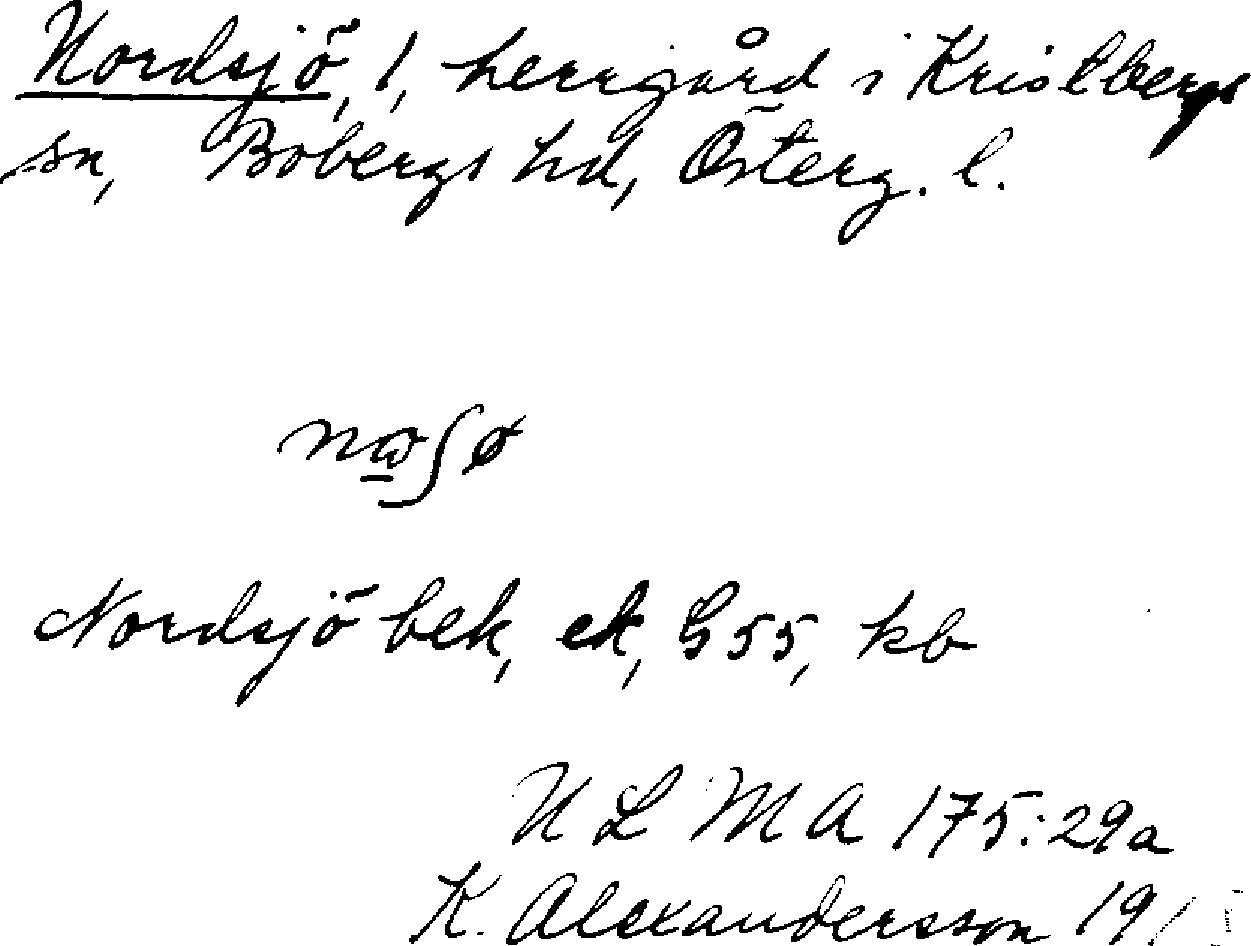 Nordsjö, 1, herrgård i Kristbergs
sn, Bobergs hd, Österg. l.
Nordsjö bek, ek, G55, kb
ULMA 175:29a
K. Alexandersson